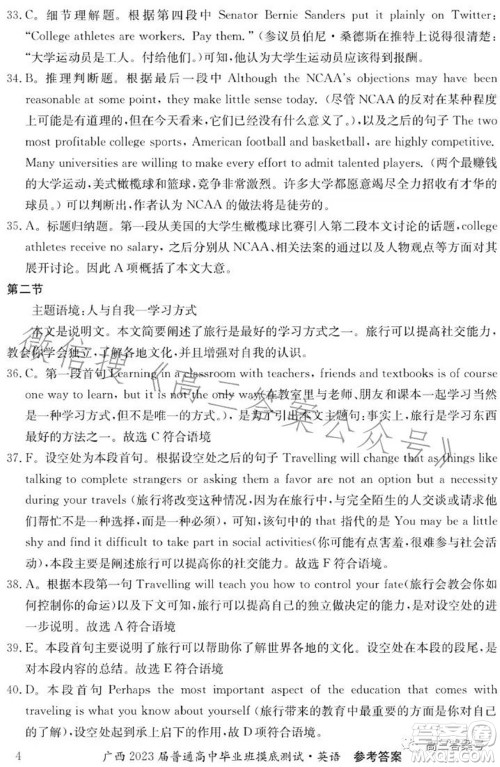 33. C。细节理解题。根据第四段中 Senator Bernie Sanders put it plainly on Twitter:
“College athletes are workers. Pay them.”(参议员伯尼·桑德斯在推特上说得很清楚:
“大学运动员是工人。付给他们。)可知,他认为大学生运动员应该得到报酬。
34. B。推理判断题。根据最后一段中 Although the NCAA's objections may have been
reasonable at some point, they make little sense today. (尽管 NCAA 的反对在某种程度
上可能是有道理的,但在今天看来,它们已经没有什么意义了。),以及之后的句子 The two
most profitable college sports, American football and basketball, are highly competitive.
Many universities are willing to admit talented players. (两个最赚钱
的大学运动,美式橄榄球和篮球,竞争非常激烈。许多大学都愿意尽全力招收有才华的
球员。)可以判断出,作者认为 NCAA 的做法将是徒劳的。
35. A。标题归纳题。第一段从美国的大学生橄榄球比赛引入第二段本文讨论的话题,college
athletes receive no salary,之后分别从 NCAA、相关法案的通过以及人物观点等方面对其
展开讨论。因此 A 项概括了本文大意。
第二节
主题语境:人与自我—学习方式
本文是说明文。本文简要阐述了旅行是最好的学习方式之一。旅行可以提高社交能力,
教会你学会独立,了解各地文化,并且增强对自我的认识。
36. C。第一段首句 Learning in a classroom with teachers, friends and textbooks is of course
one way to learn, but it is not the only way(在教室里与老师、朋友和课本一起学习当然
是一种学习方式,但不是唯一的方式),是为了引出本文主题句:事实上,旅行是学习东西
最好的方法之一。故选 C 符合语境
37. F。设空处为本段首句。根据设空处之后的句子 Travelling will change that as things like
talking to complete strangers or asking them a favor are not an option but a necessity
during your travels (旅行将改变这种情况,因为在旅行中,与完全陌生的人交谈或请求他
们帮忙不是一种选择,而是一种必须),可知,该句中的 that 指代的是 You may be a little
shy and find it difficult to take part in social activities(你可能有点害羞,很难参与社会活
动),本段主要是阐述旅行可以提高社交能力。故选 F 符合语境。
38. A。根据本段第一句 Travelling will teach you how to control your fate(旅行会教会你如
何控制你的命运)以及下文可知,旅行可以提高自己的独立做决定的能力,是对设空处的进
一步说明。故选 A 符合语境
39. E。本段首句说明了旅行可以帮助你了解世界各地的文化。设空处在本段的段尾,是
对本段内容的总结。故选 E 符合语境
40. D。本段首句 Perhaps the most important aspect of the education that comes with
traveling is what you know about yourself (旅行教育最重要的方面也许是你对自己的
了解),设空处起到承上启下的作用,故 D 项符合语境。
4 广西 2023 届普通高中毕业班摸底测试·英语 参考答案
微信搜《高三答案公众号》
高三答案号